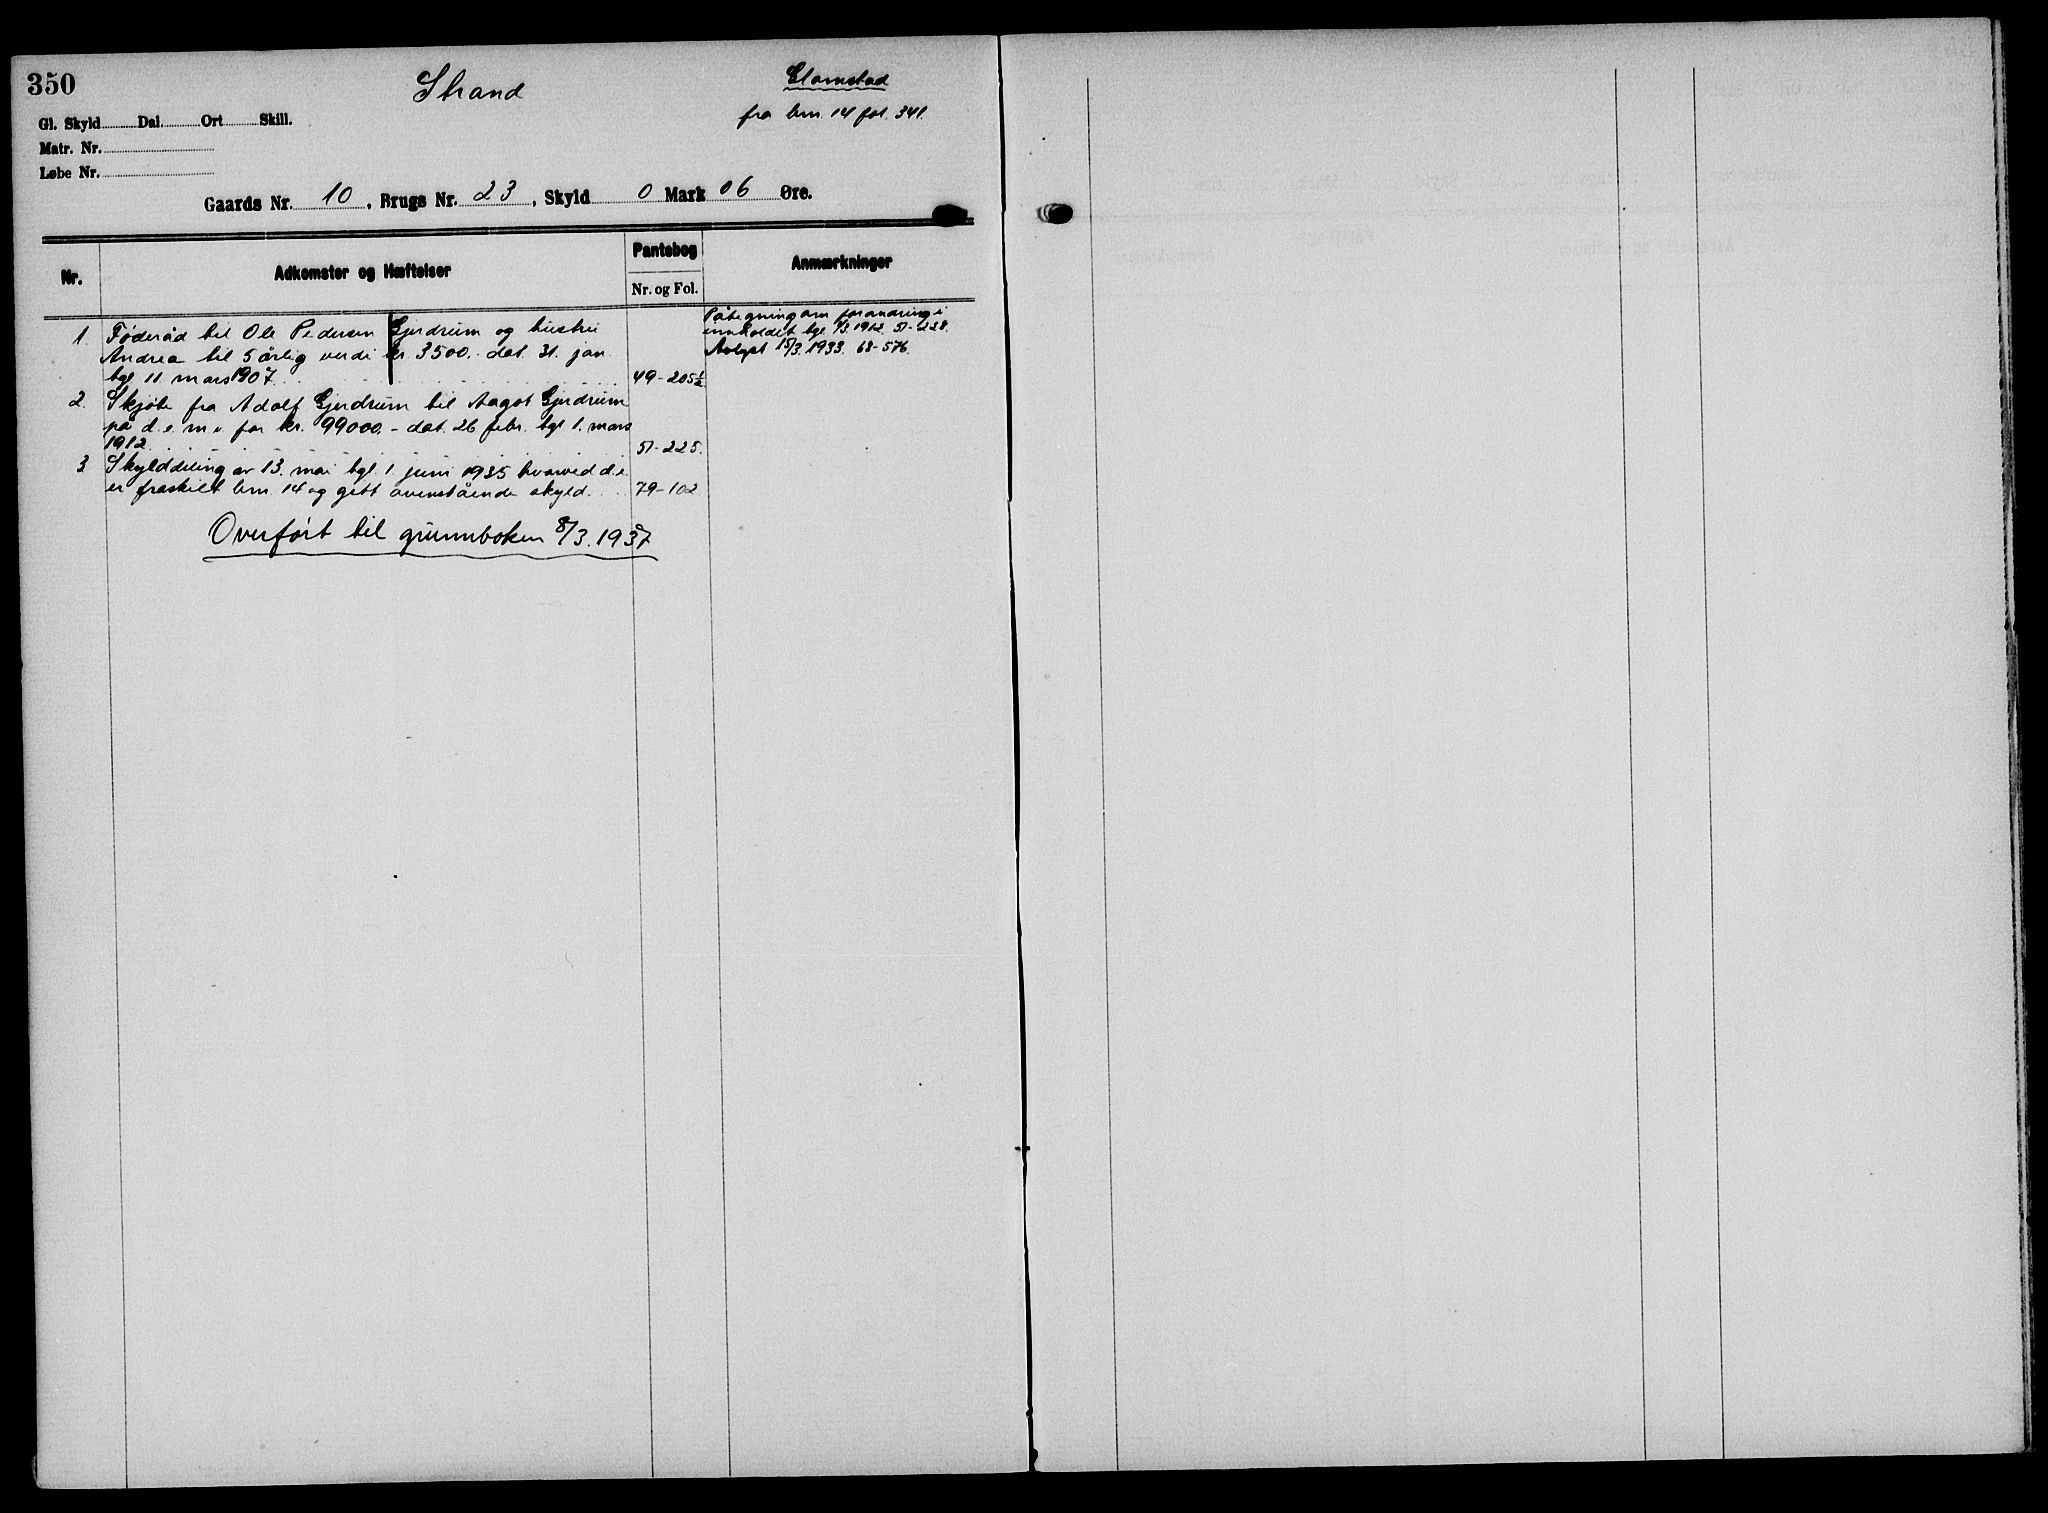 350
Strand
Glomstad
fra brn. 14 fol. 341.
Gl. Skyld Dal. Ort Skill.
Matr. Nr.
Løbe Nr.
Gaards Nr. 10, Brugs Nr. 23, Skyld 0 Mark 06 Øre.
Nr. Adkomster og Hæftelser Pantebog Anmærkninger
Nr. og Fol.
1. Føderåd til Ole Pedersen Gjerdrum og hustru
Andrea til 5 årlig verdi kr. 3500.- dat. 31. jan
tgl. 11 mars 1907 49-205½
Påtegning om forandring i
innholdet tgl. 1/3.1912. 51-228.
Avlyst 15/3.1933. 68-576.
2. Skjøte fra Adolf Gjerdrum til Aagot Gjerdrum
på d.e. m.v for kr. 99000.- dat. 26 febr. tgl 1. mars
1912 51-225.
3 Skylddeling av 13. mai tgl. 1 juni 1935 hvorved d.e.
er fraskilt brn 14 og gitt ovenstående skyld. 79-102
Overført til grunnboken 8/3.1937